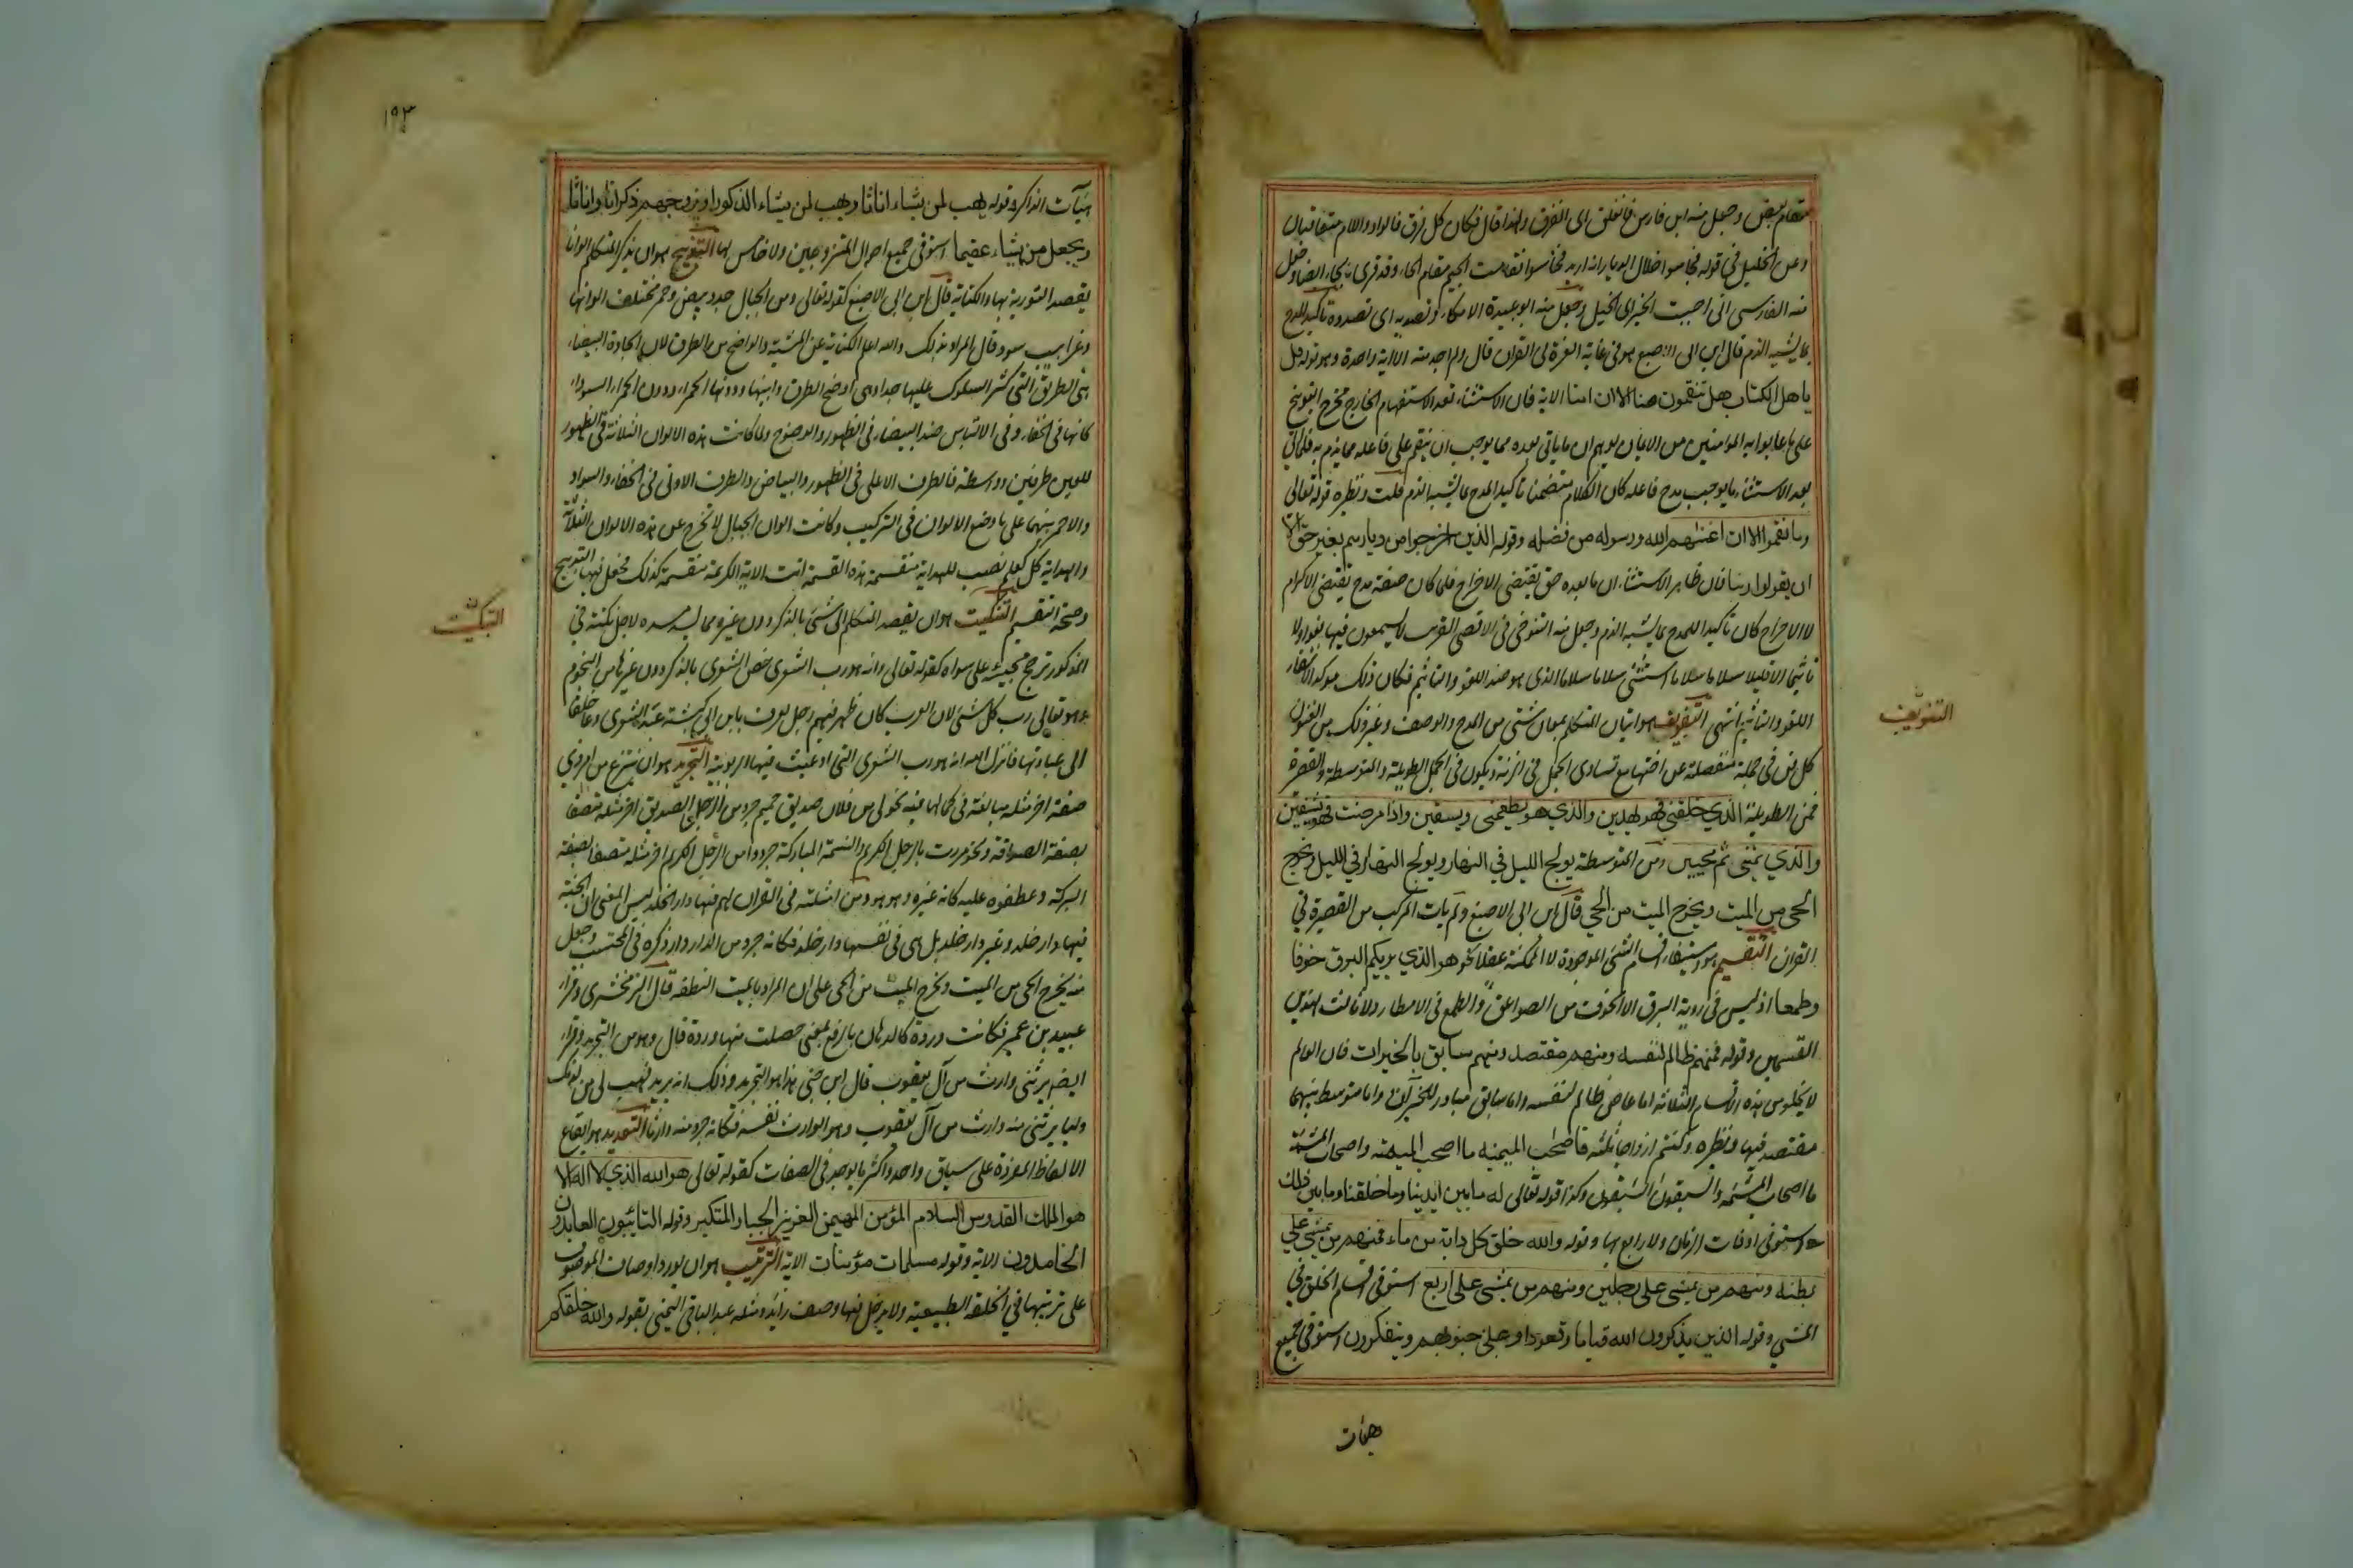 مقام بعض وجعل منه ابن فارس فانفلق اى انفرق ولهذا قال فكان كل فرق فالراء واللام متعاقبان
وعن الخليل فى قوله فجاسوا خلال الديار انه اريد فحاسوا فقامت الجيم مقام الحاء وقد قرى بالحاء ايضا وجعل
منه الفارسى انى احببت حب الخير اى الخيل وجعل منه ابو عبيدة الا مكاء وتصدية اى تصددة تاكيد المدح
بما يشبه الذم قال ابن ابى الاصبع هو فى غاية العزة فى القران قال ولم اجد منه الا اية واحدة وهو قوله قل
ياهل الكتاب هل تنقمون منا الا ان امنا الاية فان الاستثناء بعد الاستفهام الخارج مخرج التوبيخ
على ما عابوا به المؤمنين من الايمان يوهم ان ما ياتى بعده مما يوجب ان ينقم على فاعله مما يذم به فلما اتى
بعد الاستثناء ما يوجب مدح فاعله كان الكلام متضمنا تاكيد المدح بما يشبه الذم قلت ونظيره قوله تعالى
وما نقموا الا ان اغنيهم الله ورسوله من فضله وقوله الذين اخرجوا من ديارهم بغير حق الا
ان يقولوا ربنا فان ظاهر الاستثناء ان ما بعده حق يقتضى الاخراج فلما كان صفة مدح تقتضى الاكرام
لا الاخراج كان تاكيدا للمدح بما يشبه الذم وجعل منه التنوخى فى الاقصى القريب لا يسمعون فيها لغوا ولا
تاثيما الا قيلا سلاما سلاما استثنى سلاما سلاما الذى هو ضد اللغو والتاثيم فكان ذلك موكدا لانتفاء
اللغو والتاثيم انتهى التفويف هو اتيان المتكلم بمعان شتى من المدح والوصف وغير ذلك من الفنون
كل فن فى جملة منفصلة عن اختها مع تساوى الجمل فى الزنة ويكون فى الجمل الطويلة والمتوسطة والقصيرة
فمن الطويلة الذي خلقنى فهو يهدين والذي هو يطعمنى ويسقين واذا مرضت فهو يشفين
والذي يميتنى ثم يحيين ومن المتوسطة يولج الليل في النهار ويولج النهار في الليل ويخرج
الحى من الميت ويخرج الميت من الحي قال ابن ابى الاصبع ولم يات المركب من القصيرة فى
القران التقسيم هو استيفاء اقسام الشئ الموجودة لا الممكنة عقلا نحو هو الذي يريكم البرق خوفا
وطمعا اذ ليس فى روية البرق الا الخوف من الصواعق والطمع فى الامطار ولا ثالث لهذين
القسمين وقوله فمنهم ظالم لنفسه ومنهم مقتصد ومنهم سابق بالخيرات فان العالم
لا يخلو من هذه الاقسام الثلاثة اما عاص ظالم لنفسه واما سابق مبادر للخيرات واما متوسط بينهما
مقتصد فيها ونظيره وكنتم ازواجا ثلثة فاصحب الميمنة ما اصحب الميمنة واصحاب المشئمة
ما اصحاب المشئمة والسبقون السبقون وكذا قوله تعالى له ما بين ايدينا وما خلفنا وما بين ذلك
استوفى اوقات الزمان ولا رابع لها وقوله والله خلق كل دابة من ماء فمنهم من يمشى على
بطنه ومنهم من يمشى على رجلين ومنهم من يمشى على اربع استوفى اقسام الخلق فى
المشى وقوله الذين يذكرون الله قياما وقعودا وعلى جنوبهم ويتفكرون استوفى جميع
هيئات
التفويف
١٩٣
هيئات الذاكر وقوله يهب لمن يشاء اناثا ويهب لمن يشاء الذكور او يزوجهم ذكرانا واناثا
ويجعل من يشاء عقيما استوفى جميع احوال المتزوجين ولا خامس لها التدبيج هو ان يذكر المتكلم الوانا
يقصد التورية بها والكناية قال ابن ابى الاصبع كقوله تعالى ومن الجبال جدد بيض وحمر مختلف الوانها
وغرابيب سود قال المراد بذلك والله اعلم الكناية عن المشتبه والواضح من الطرق لان الجادة البيضاء
هى الطريق التى كثر السلوك عليها جدا وهى اوضح الطرق وابينها ودونها الحمراء ودون الحمراء السوداء
كانها فى الخفاء وفى الالتباس ضد البيضاء فى الظهور والوضوح ولما كانت هذه الالوان الثلاثة فى الظهور
للعين طرفين وواسطة فالطرف الاعلى فى الظهور والبياض والطرف الادنى فى الخفاء والسواد
والاحمر بينهما على وضع الالوان فى التركيب وكانت الوان الجبال لا تخرج عن هذه الالوان الثلاثة
والهداية بكل علم نصب للهداية منقسمة هذه القسمة اتت الاية الكريمة منقسمة كذلك فحصل فيها التدبيج
وصحة التقسيم التنكيت هو ان يقصد المتكلم الى شئ بالذكر دون غيره مما يسد مسده لاجل نكتة فى
المذكور ترجح مجيئه على سواه كقوله تعالى وانه هو رب الشعرى خص الشعرى بالذكر دون غيرها من النجوم
وهو تعالى رب كل شئ لان العرب كان ظهر فيهم رجل يعرف بابن ابى كبشة عبد الشعرى ودعا خلقا
الى عبادتها فانزل الله انه هو رب الشعرى التى ادعيت فيها الربوبية التجريد هو ان ينتزع من امر ذى
صفة اخر مثله مبالغة فى كمالها فيه نحو لى من فلان صديق حميم جرد من الرجل الصديق اخر مثله متصفا
بصفة الصداقة ونحو مررت بالرجل الكريم والنسمة المباركة جردوا من الرجل الكريم اخر مثله متصفا بصفة
البركة وعطفوه عليه كانه غيره وهو هو ومن امثلته فى القران لهم فيها دار الخلد ليس المعنى ان الجنة
فيها دار خلد وغير دار خلد بل هى فى نفسها دار خلد فكانه جرد من الدار دارا ذكره فى المحتسب وجعل
منه يخرج الحى من الميت ويخرج الميت من الحى على ان المراد بالميت النطفة قال الزمخشرى وقراء
عبيد بن عمير فكانت وردة كالدهان بالرفع بمعنى حصلت منها وردة قال وهو من التجريد وقراء
ايضا يرثنى وارث من آل يعقوب قال ابن جنى هذا هو التجريد وذلك انه يريد فهب لى من لدنك
وليا يرثنى منه وارث من آل يعقوب وهو الوارث نفسه فكانه جرد منه وارثا التعديد هو ايقاع
الالفاظ المفردة على سياق واحد واكثر ما يوجد فى الصفات كقوله تعالى هو الله الذي لا اله الا
هو الملك القدوس السلام المؤمن المهيمن العزيز الجبار المتكبر وقوله التائبون العابدون
الحامدون الاية وقوله مسلمات مؤمنات الاية الترتيب هو ان يورد اوصاف الموصوف
على ترتيبها في الخلقة الطبيعية ولا يدخل فيها وصف زائد ومثله عبد الباقى اليمنى بقوله والله خلقكم
التنكيت